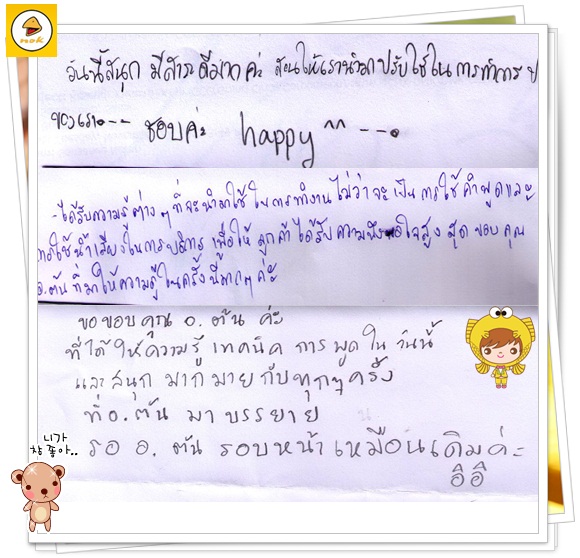 nok
วันนี้สนุก มีสาระดีมากค่ะ สอนให้เรานำมาปรับใช้ในการทำการ
ของเรา--- ชอบค่ะ happy ^^ ---
-ได้รับความรู้ต่างๆที่จะนำมาใช้ในการทำงานไม่ว่าจะเป็น การใช้คำพูดและ
การใช้น้ำเสียงในการบริการ เพื่อให้ ลูกค้าได้รับความพึงพอใจสูงสุด ขอบคุณ
อ.ต้น ที่มาให้ความรู้ในครั้งนี้มากๆค่ะ
ขอขอบคุณ อ. ต้น ค่ะ
ที่ได้ให้ความรู้ เทคนิค การพูดใน วันนี้
และสนุก มากมายกับทุกๆครั้ง
ที่อ.ต้น มาบรรยาย
รอ อ. ต้น รอบหน้าเหมือนเดิมค่ะ
อิอิ
니가
참 좋아..